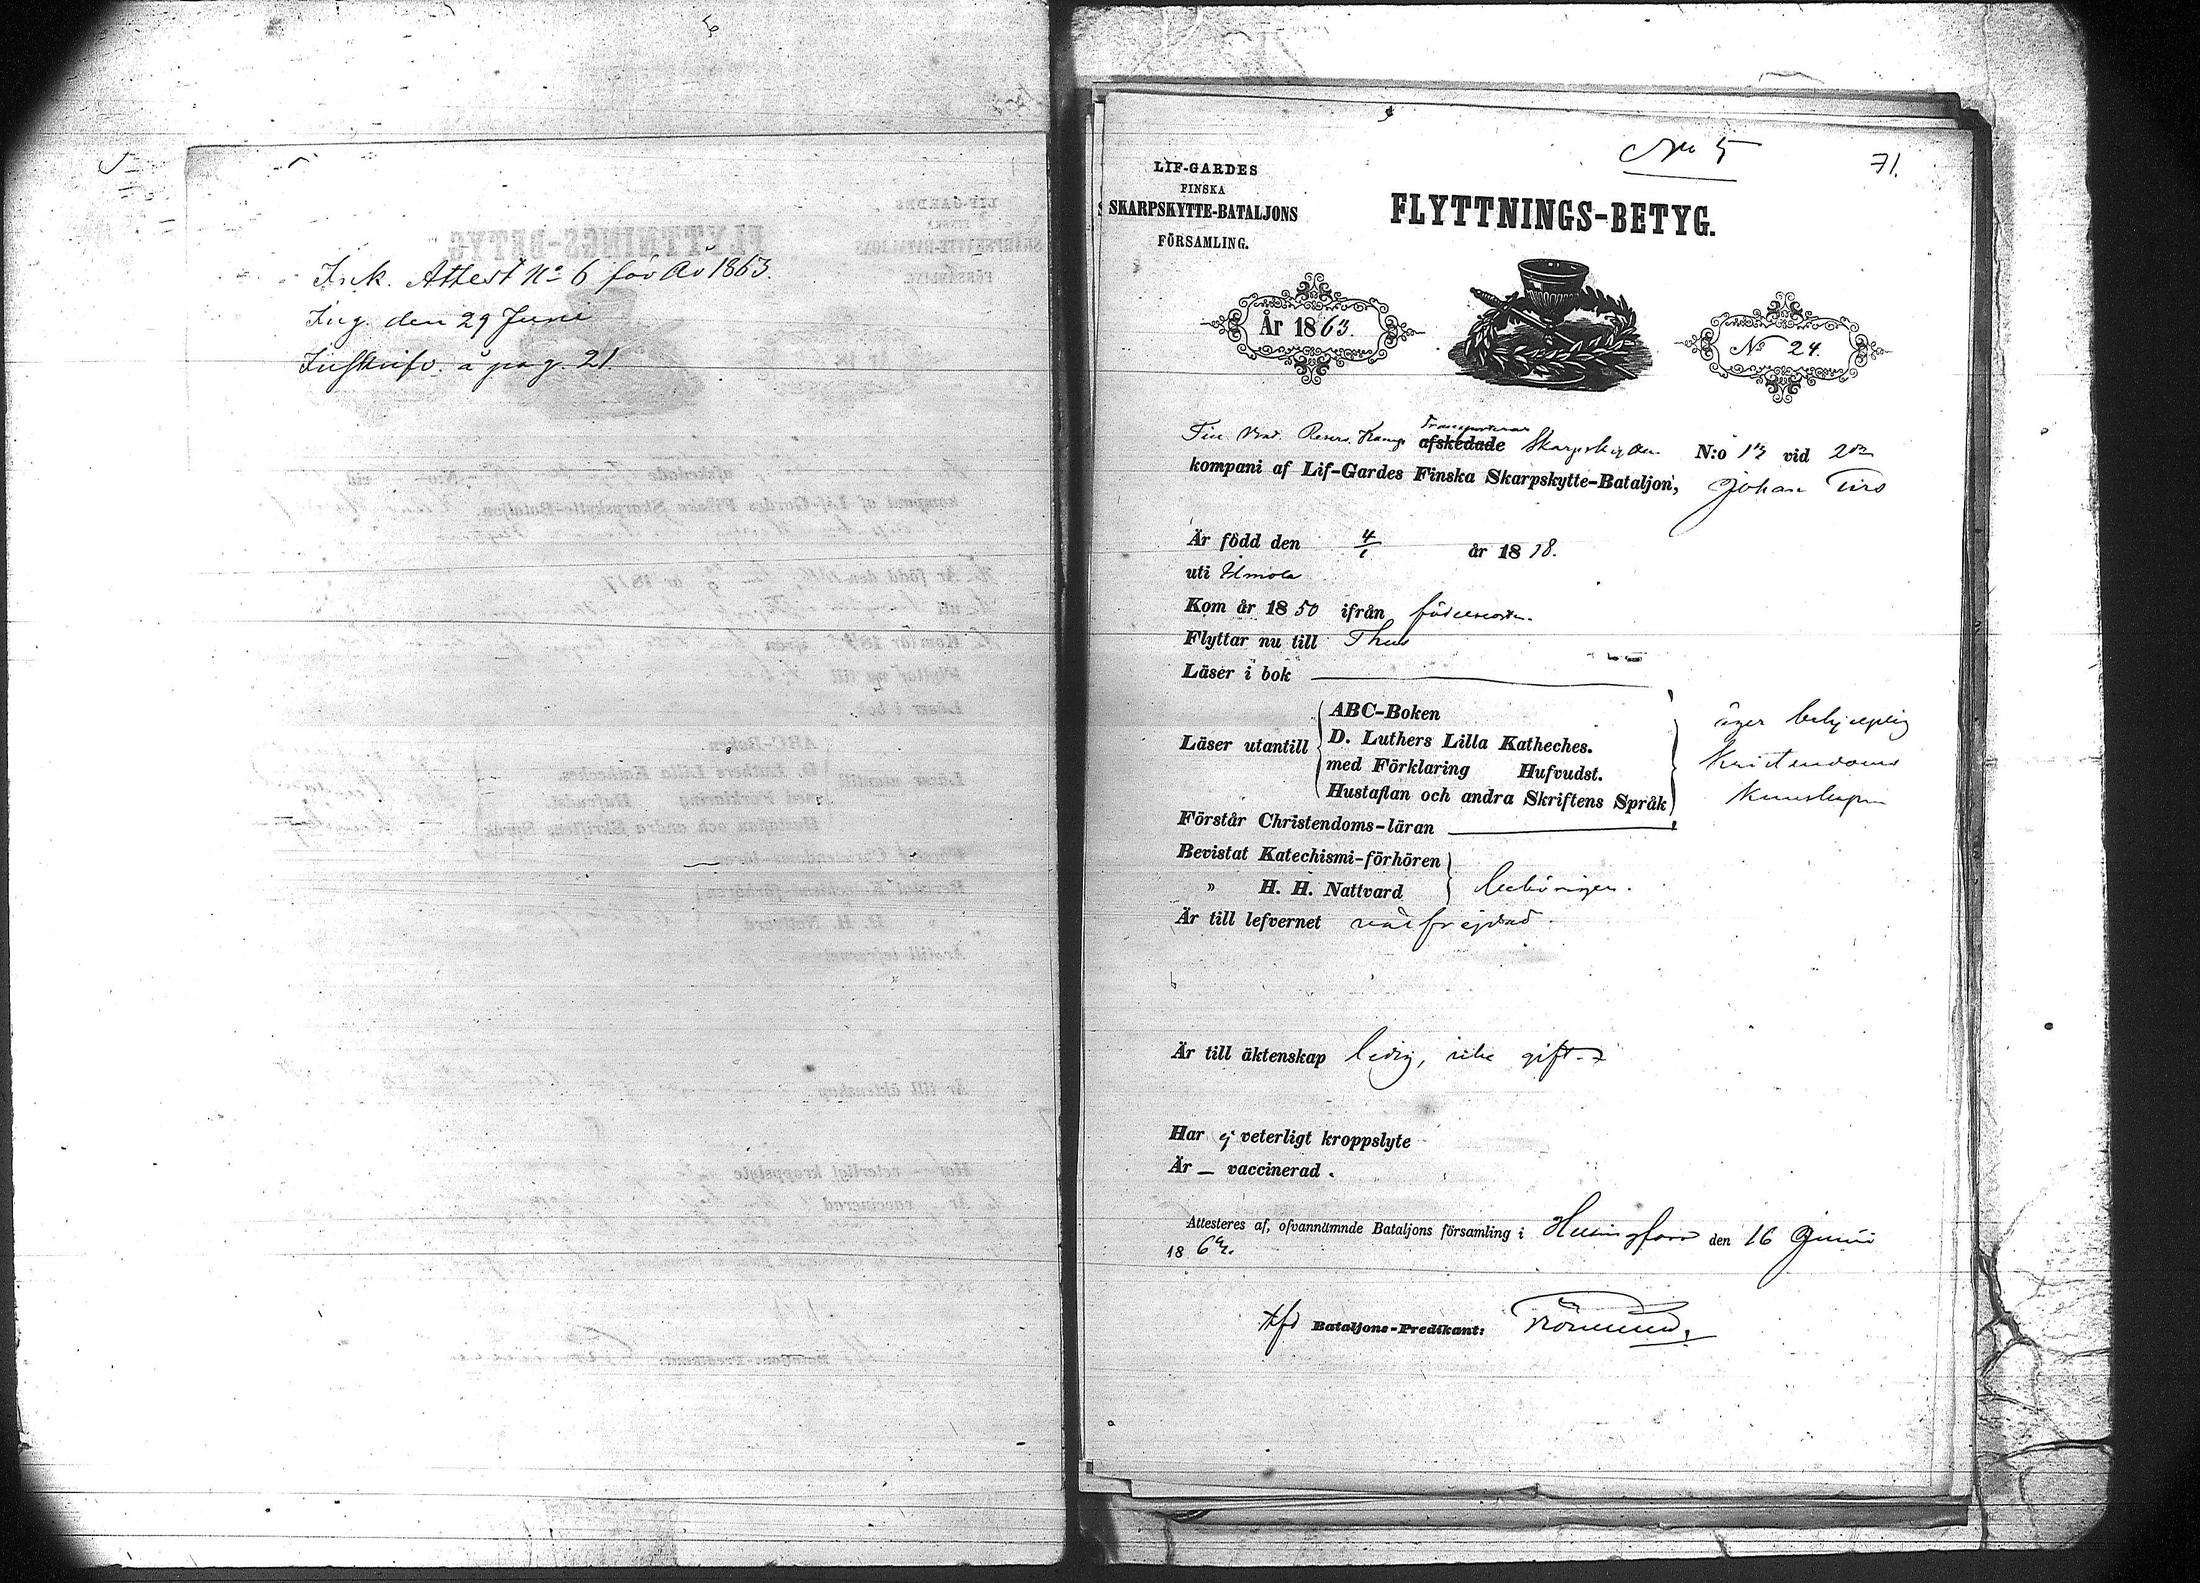 Ink. Attest No 6 för År 1863.
Ing. den 29 Juni
Inskrifv. å pag. 21.
No 5
71.
LIF-GARDES
FINSKA
SKARPSKYTTE-BATALJONS
FÖRSAMLING.
FLYTTNINGS-BETYG.
År 1863.
No 24.
Transporterade
Till Reserv Komp. afskedade Skarpskytten N:o 13 vid 2dra
kompani af Lif-Gardes Finska Skarpskytte-Bataljon, Johan Turs
Är född den 4/1 år 1818.
uti Ilmola
Kom år 1850 ifrån födelseorten.
Flyttar nu till Thus
Läser i bok
Läser utantill
ABC-Boken
D. Luthers Lilla Katheches.
med Förklaring Hufvudst.
Hustaflan och andra Skriftens Språk
äger behjelplig
kristendoms
kunskap
Förstår Christendoms-läran
Bevistat Katechismi-förhören
" H. H. Nattvard
behörigen.
Är till lefvernet välfrejdad.
Är till äktenskap ledig, icke gift
Har ej veterligt kroppslyte
Är — vaccinerad.
Attesteras af, ofvannämnde Bataljons församling i Helsingfors den 16 Juni
1863.
Bataljons-Predikant: